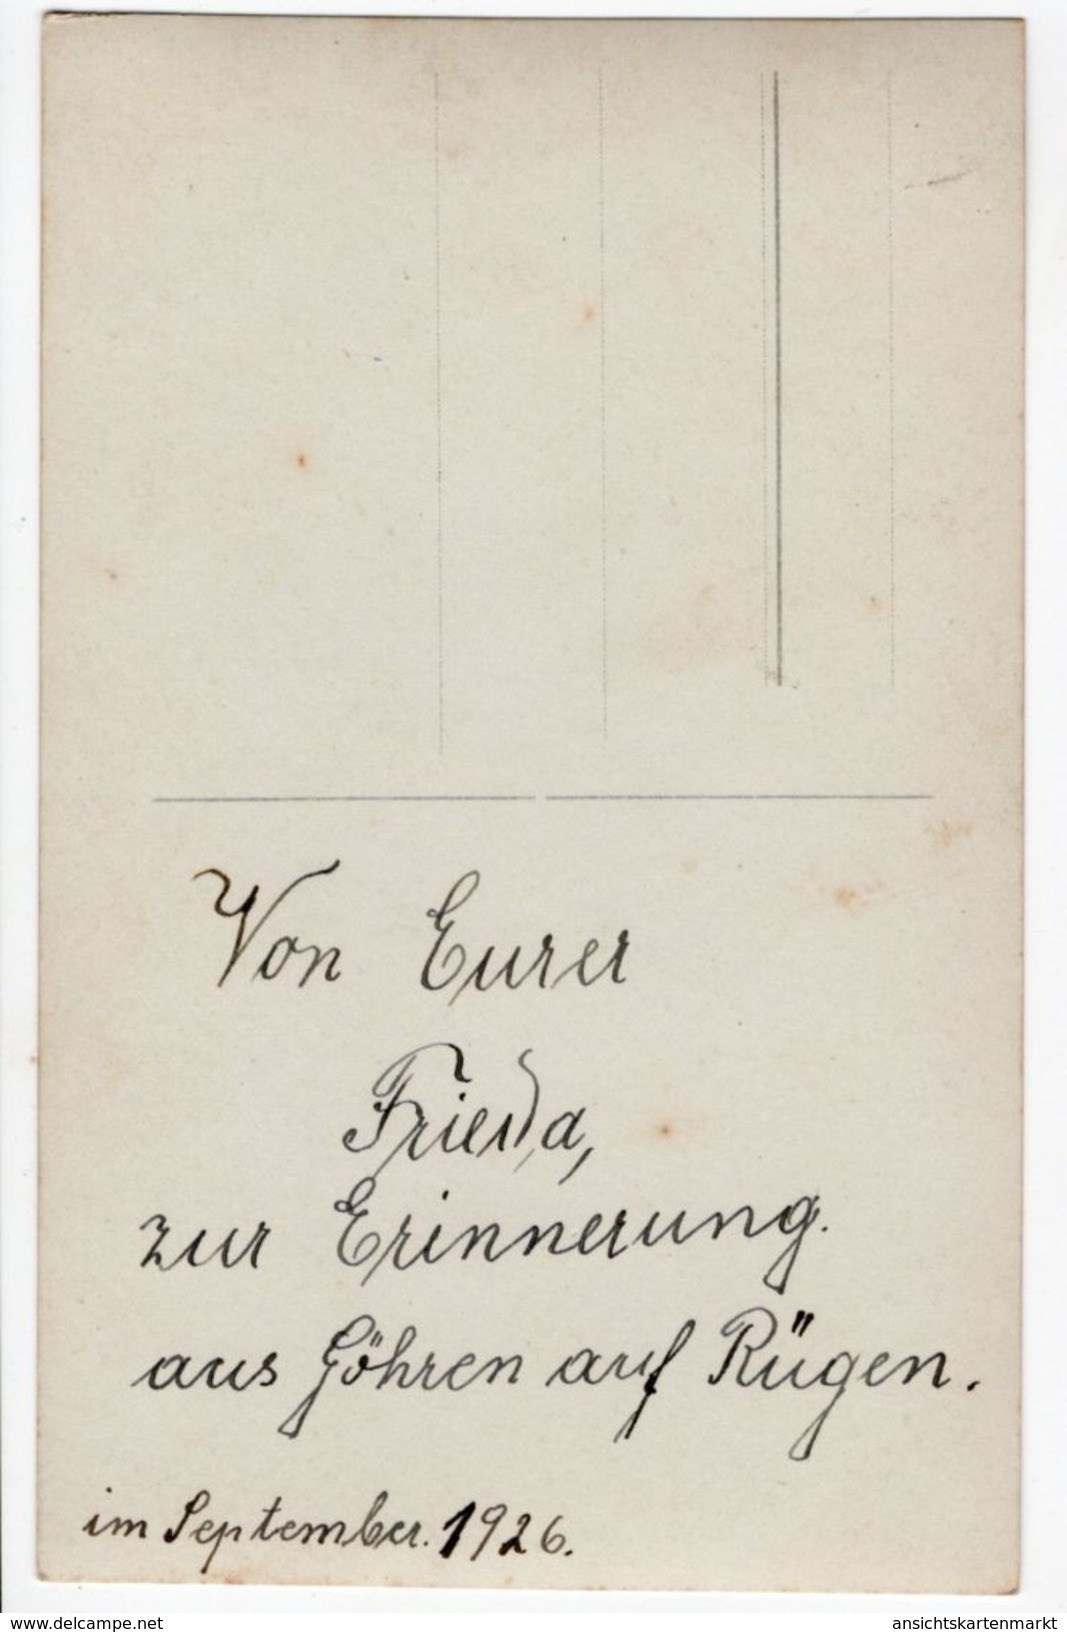 Von Eurer
Frieda,
zur Erinnerung.
aus Göhren auf Rügen.
im September. 1926.
www.delcampe.net
ansichtskartenmarkt